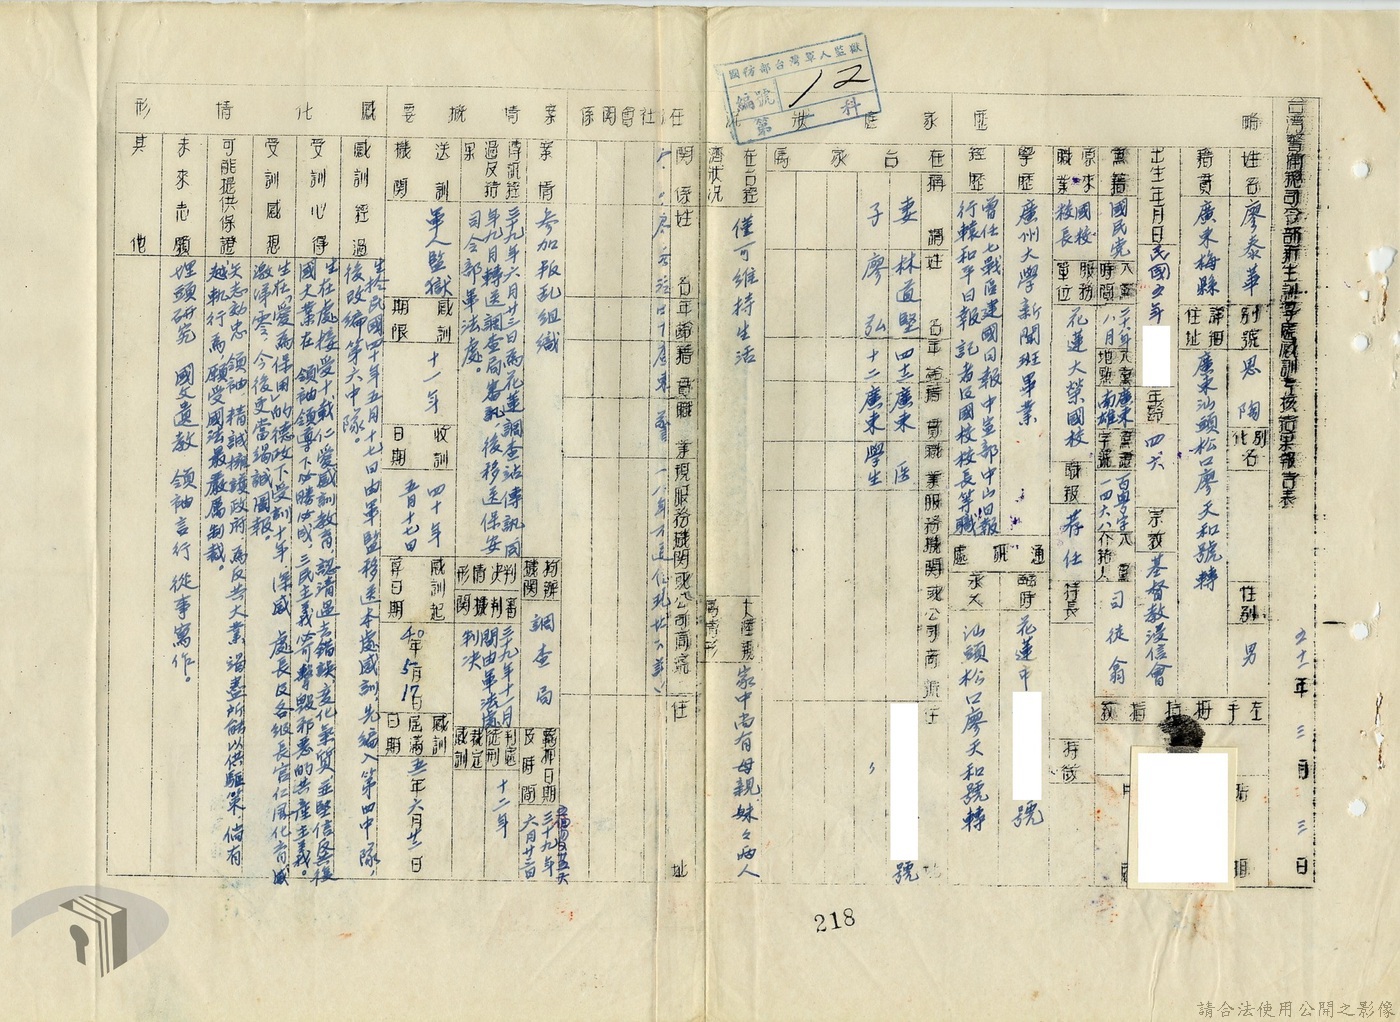 台灣警備總司令部新生訓導處感訓考核結果報告表
五十一年三月三日
略歷
姓名 廖泰華 別號 思陶 別名化名 性別 男
籍貫 廣東梅縣 詳細住址 廣東汕頭松口廖天和號轉
出生年月日 民國五年 年齡 四六 宗教 基督教浸信會
黨籍 國民黨 入黨時間 二六年八月 入黨地點 廣東南雄 黨證字號 入黨介紹人 司徒翁
原來職業 國校校長 服務單位 花蓮大榮國校 職級 荐任 特長 特徵
學歷 廣州大學新聞班畢業
經歷 曾任七戰區建國日報中堂部中山日報
行轅和平日報記者及國校校長等職
通訊處 臨時 花蓮中 號
永久 汕頭松口廖天和號轉
左手拇指指紋
家庭狀況
在台家屬 稱謂 姓名 年齡 籍貫 職業 服務機關或公司商號 住址
妻 林道堅 四十三 廣東 醫 號
子 廖弘 十二 廣東 學生
在台經濟狀況 僅可維持生活
大陸親屬情形 家中尚有母親、妹々兩人
國防部台灣軍人監獄
編號 12
第 科
在台社會關係
關係 姓名 年齡 籍貫 職業 現服務機關或公司商號 住址
案情概要
案情 參加叛亂組織 拘辦機關 調查局 羈押日期及時間 三十九年六月廿三日
傳訊經過及結果 三十九年六月廿三日為花蓮調查站傳訊同
年九月轉送調查局審訊、後移送保安
司令部軍法處。
判決情形 三十九年十一月間由軍法處判決
判處徒刑裁定感訓 十二年
送訓機關 軍人監獄 感訓期限 十一年 收訓日期 四十年五月十七日 感訓起算日期 40年5月17日 感訓屆滿日期 五一年六月廿二日
感化情形
感訓經過 生於民國四十年五月十七日由軍監移送本處感訓、先編入第四中隊，
後改編第六中隊。
受訓心得 生在處接受十載仁愛國訓教育、認清過去錯誤、變化氣質、並堅信反共復
國大業在 領袖領導下必勝必成、三民主義必可擊毀邪惡的共產主義。
受訓感想 生在「愛為保用」的德政下受訓十年、深感 處長及各級長官仁風化育、感
激涕零、今後更當竭誠圖報。
可能提供保證 矢志効忠 領袖 精誠擁護政府、為反共大業 竭盡所能以供驅策、倘有
越軌行為願受國法最嚴厲制裁。
未來志願 埋頭研究 國父遺教 領袖言行 從事寫作。
其他
218
請合法使用公開之影像